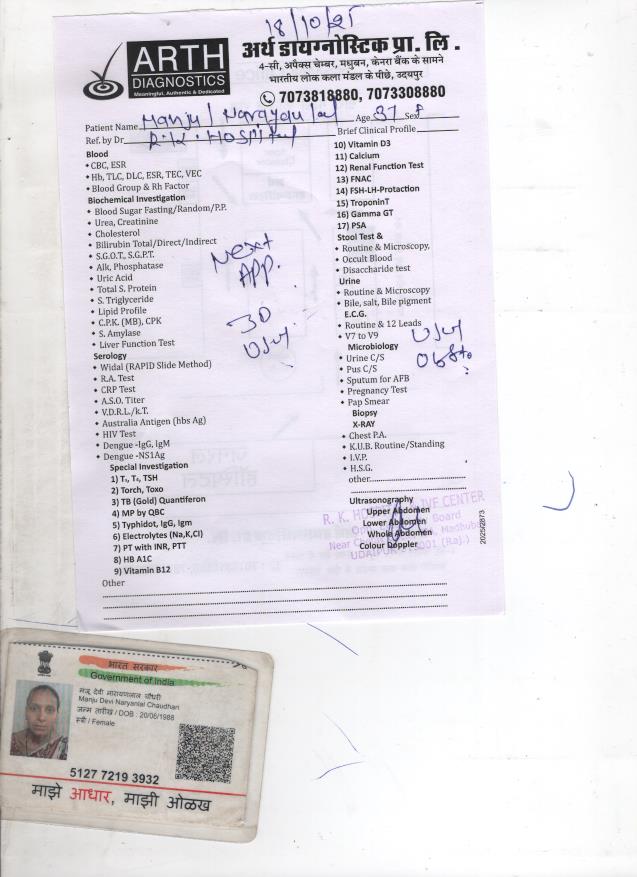 18/10/25
ARTH
DIAGNOSTICS
Meaningful, Authentic & Dedicated
अर्थ डायग्नोस्टिक प्रा. लि .
4-सी, अपैक्स चेम्बर, मधुबन, केनरा बैंक के सामने
भारतीय लोक कला मंडल के पीछे, उदयपुर
7073818880, 7073308880
Patient Name Manju / Narayan lal Age 37 Sex F
Ref. by Dr. R.K. Hospital Brief Clinical Profile
Blood
CBC, ESR
Hb, TLC, DLC, ESR, TEC, VEC
Blood Group & Rh Factor
Biochemical Investigation
Blood Sugar Fasting/Random/P.P.
Urea, Creatinine
Cholesterol
Bilirubin Total/Direct/Indirect
S.G.O.T., S.G.P.T.
Alk, Phosphatase
Uric Acid
Total S. Protein
S. Triglyceride
Lipid Profile
C.P.K. (MB), CPK
S. Amylase
Liver Function Test
Next
App.
3D
Serology
Widal (RAPID Slide Method)
R.A. Test
CRP Test
A.S.O. Titer
V.D.R.L./k.T.
Australia Antigen (hbs Ag)
HIV Test
Dengue -IgG, IgM
Dengue -NS1Ag
Special Investigation
1) T₃, T₄, TSH
2) Torch, Toxo
3) TB (Gold) Quantiferon
4) MP by QBC
5) Typhidot, IgG, Igm
6) Electrolytes (Na,K,Cl)
7) PT with INR, PTT
8) HB A1C
9) Vitamin B12
Other
10) Vitamin D3
11) Calcium
12) Renal Function Test
13) FNAC
14) FSH-LH-Protaction
15) TroponinT
16) Gamma GT
17) PSA
Stool Test &
Routine & Microscopy,
Occult Blood
Disaccharide test
Urine
Routine & Microscopy
Bile, salt, Bile pigment
E.C.G.
Routine & 12 Leads
V7 to V9
Microbiology
Urine C/S
Pus C/S
Sputum for AFB
Pregnancy Test
Pap Smear
Biopsy
X-RAY
Chest P.A.
K.U.B. Routine/Standing
I.V.P.
H.S.G.
other
Ultrasonography
Upper Abdomen
Lower Abdomen
Whole Abdomen
Colour Doppler
R. K. HO CENTER
Board
Near Madhub
UDAIPUR 001 (Raj.)
भारत सरकार
Government of India
मंजू देवी नारायणलाल चौधरी
Manju Devi Naryanlal Chaudhari
जन्म तारीख / DOB : 20/06/1988
स्त्री / Female
5127 7219 3932
माझे आधार, माझी ओळख